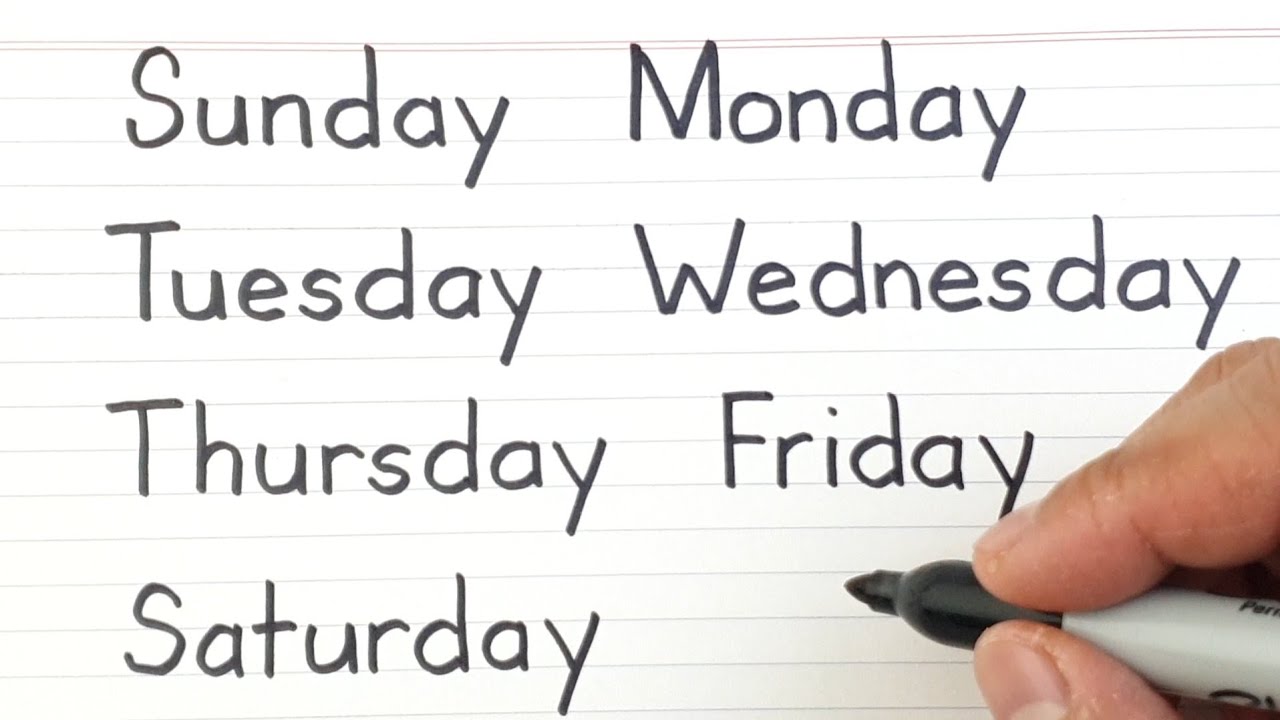 Sunday Monday
Tuesday Wednesday
Thursday Friday
Saturday